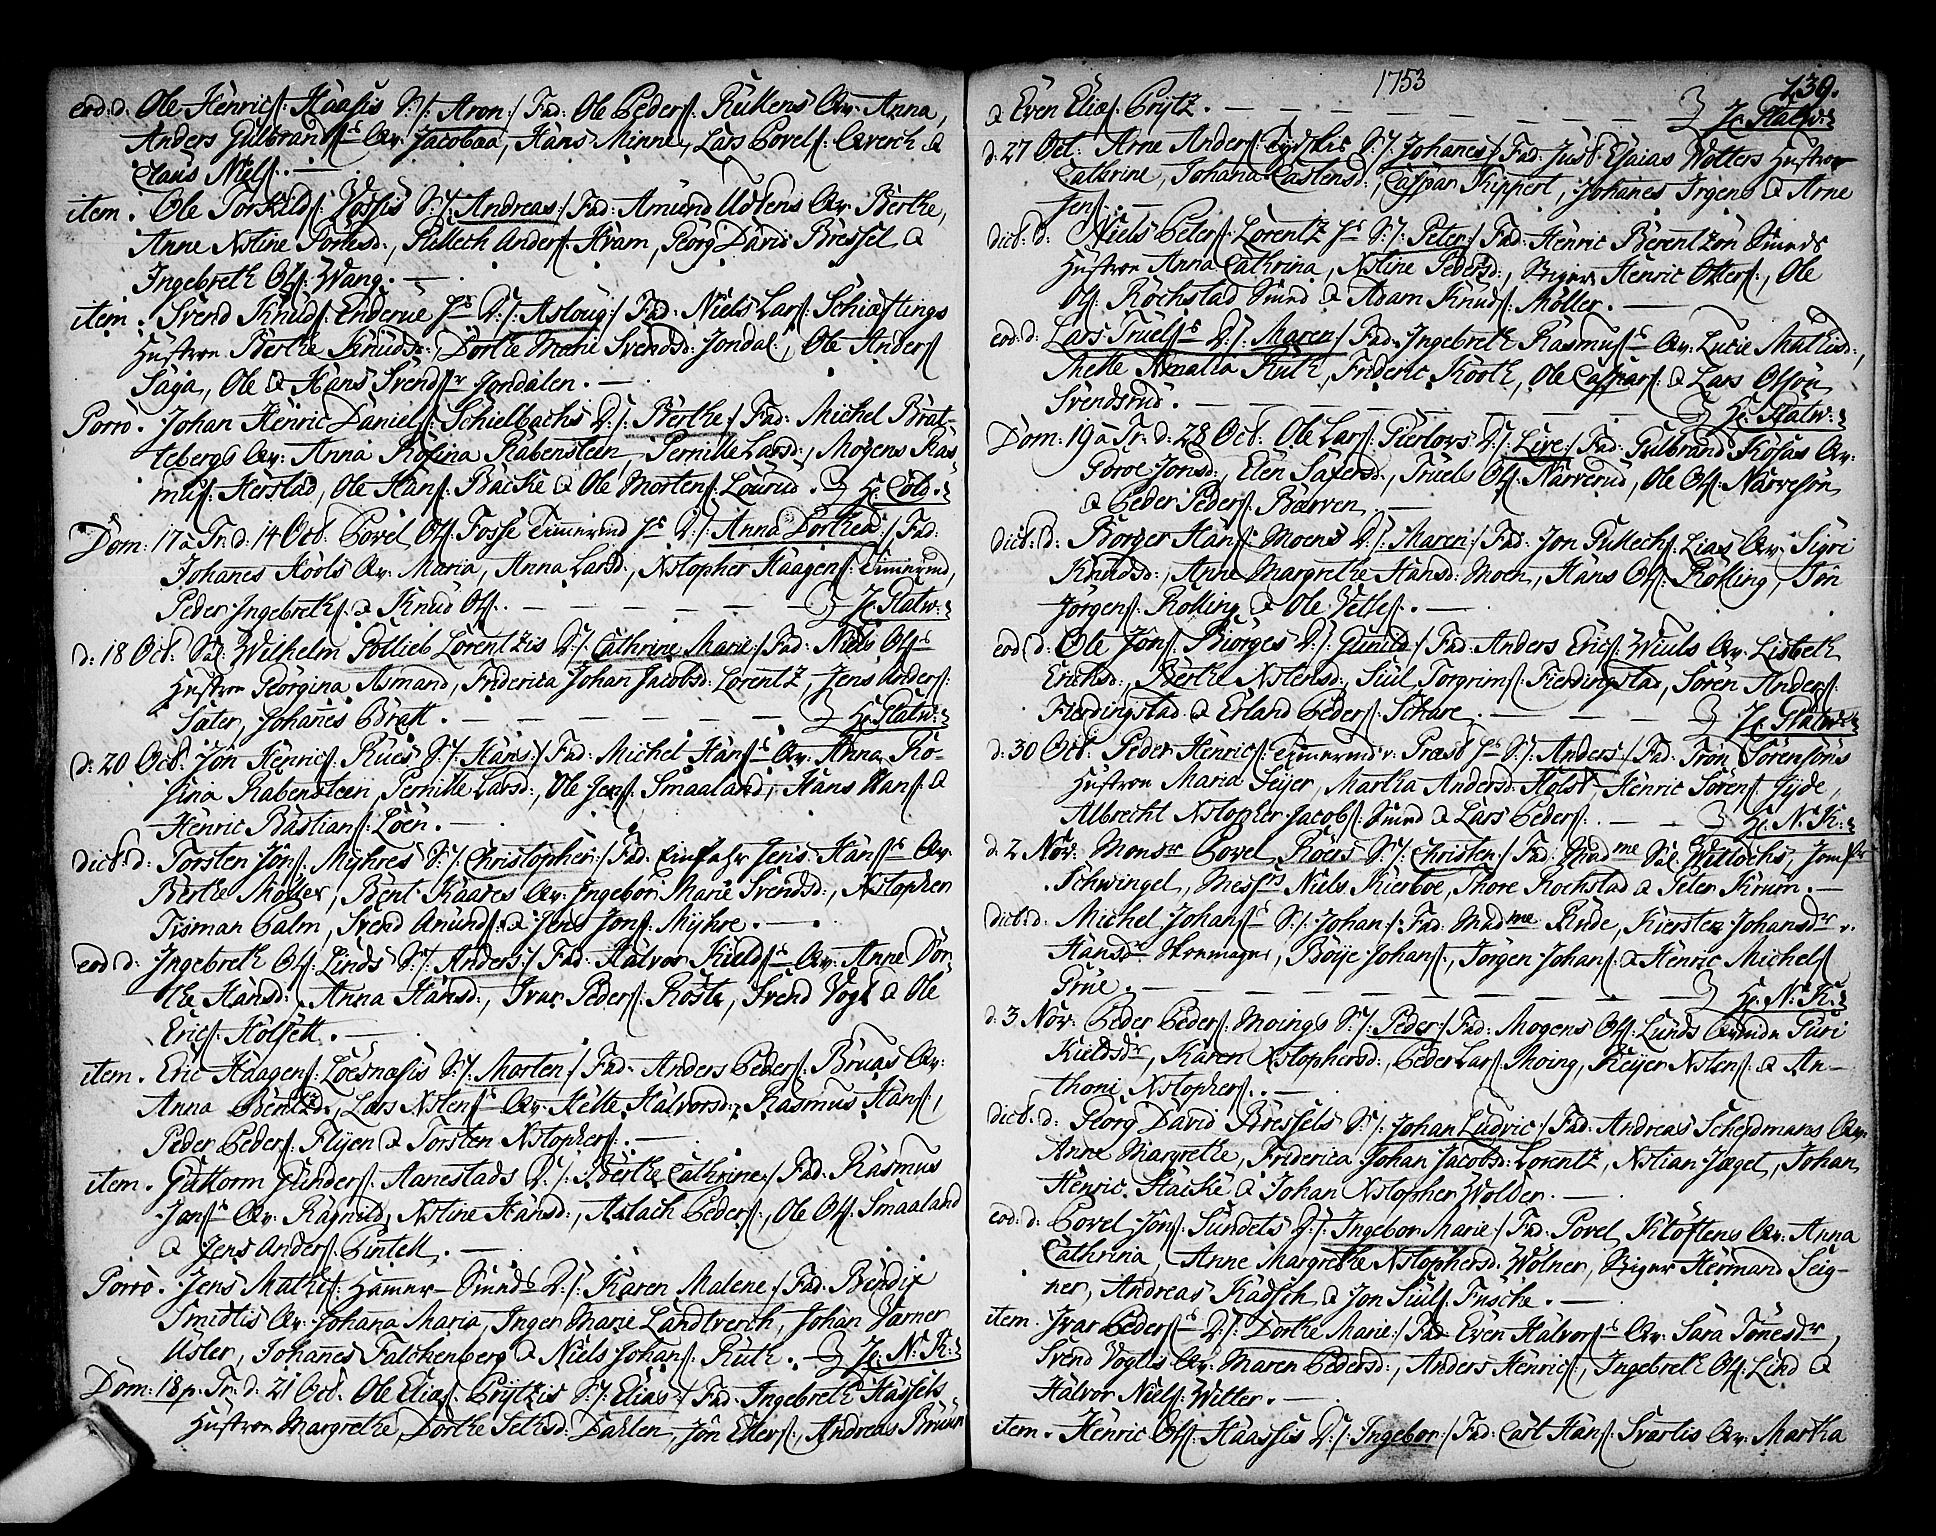 eod: d: Ole Henrics: Haasis S:/: Aron:/ Fad: Ole Peders: Rukkens Qv: Anna,
Anders Gulbrands: Qv: Jacobaa, Hans Minne, Lars Povels: Qverch &
Claus Niels:. —
item. Ole Torkilds: Vossis S:/: Andreas:/ Fad: Amund Udtens Qv: Berthe,
Anne Xstine Tomesd:, Gullech Anders: Hram, Georg David Bressel &
Ingebreth Ols: Wang. —
item. Svend Knuds: Enderue Hs D:/: Asloug:/ Fad: Niels Lars: Schiæftings
Hustrou Berthe Knudsd:, Dorthe Marie Svendsd: Jondal, Ole Anders:
Saga, Ole & Hans Svends:r Jondalen. —
Porro. Johan Henric Daniels: Schielbachs D:/: Berthe:/ Fad: Michel Brat-
tebergs Qv: Anna Rosina Rabensteen, Pernille Larsd:, Mogens Ras-
mus: Herstad, Ole Hans: Backe & Ole Mortens: Lourud. Hr: Cold.
Dom: 17 a Tr: d: 14 Oct: Povel Ols: Fosse Timermd Hs D:/: Anna Dorthea:/ Fad:
Johanes Kools Qv: Maria, Anna Larsd:, Xstopher Haagens: Timermd,
Peder Ingebreths: & Knud Ols:. — — — — — — Hr: Slatw:
d: 18 Oct: Sal: Wilhelm Gotlieb Lorentzis D:/: Cathrine Marie:/ Fad: Niels Ols:
Hustrou Georgina Asmand, Friderica Johan Jacobsd: Lorentz, Jens Anders:
Sater, Johanes Bratt. — — — — — — Hr: Slatw:
d: 20 Oct: Jon Henrics: Rues S:/: Hans:/ Fad: Michel Hans: Qv: Anna Ro-
sina Rabensteen, Pernille Larsd:, Ole Jens: Smaaland, Hans Hans: &
Henric Bastians: Loen. —
dict: d: Torsten Jons: Myhres S:/: Christopher:/ Fad: Einfahr Jens Hans: Qv:
Berthe Moller, Bent Kaares Qv: Ingebor Marie Svendsd:, Xstopher
Tisman Calm, Svend Amunds: & Jens Jons: Myhre. —
eod d: Ingebreth Ols: Linds S:/: Anders:/ Fad: Halvor Kields: Qv: Anne Dor-
the Hansd:, Anna Hansd:, Ivar Peders: Roste, Svend Vogt & Ole
Erics: Holsett. —
item. Eric Haagens: Loesnæsis S:/: Morten:/ Fad: Anders Peders: Bruas Qv:
Anna Bentsd:, Lars Xstens: Qv: Helle Halvorsd:, Rasmus Hans:,
Peder Peders: Flyen & Torsten Xstophers:. —
item. Guttorm Gunders: Aanestads D:/: Berthe Cathrine:/ Fad: Rasmus
Jons: Qv: Ragnild, Xstine Hansd:, Aslach Peders:, Ole Ols: Smaaland
& Jens Anders: Pintell. —
Porro. Jens Mathis: Hamer-Smeds D:/: Karen Malene:/ Fad: Bendix
Smidtis Qv: Johana Maria, Inger Marie Landtverch, Johan Varner
Usler, Johanes Falchenberg & Niels Johans: Ruth. Hr: N: K:
Dom: 18 p: Tr: d: 21 Oct: Ole Elias: Prytzis S:/: Elias:/ Fad: Ingebreth Hassels
Hustrou Margrethe, Dorthe Sethsd: Dahlen, Jon Eilers:, Andreas Bruun
1753
139.
& Even Elias: Prytz. — — — — — — Hr: Slatw:
d: 27 Oct: Arne Anders: Tydskis S:/: Johanes:/ Fad: Just: Esaias Wolters Hustrou
Cathrine, Johana Castensd:, Caspar Kippert, Johanes Irgens & Arne
Jens:. —
dict: d: Niels Peters: Lorentz Hs S:/: Peter:/ Fad: Henric Berentzon Smeds
Hustrou Anna Cathrina, Xstine Pedersd:, Henric Otters:, Ole
Ols: Rochstad Smed & Adam Knuds: Moller. —
eod: d: Lars Truels: D:/: Maren:/ Fad: Ingebreth Rasmus: Qv: Lucie Mathisd:,
Mette Amalia Ruth, Frideric Kooth, Ole Caspars: & Lars Olson
Svendsrud. — — — — — — Hr: Slatw:
Dom: 19 a Tr: d: 28 Oct: Ole Lars: Gierlovs D:/: Live:/ Fad: Gulbrand Kosas Qv:
Goroe Jonsd:, Elen Safersd:, Truels Ols: Narverud, Ole Ols: Narveson
& Peder Peders: Barven. —
dict: d: Borger Hans: Moens D:/: Maren:/ Fad: Jon Gullechs: Lias Qv: Sigri
Knudsd:, Anne Margrethe Hansd: Moen, Hans Ols: Kolling, Jon
Jorgens: Kolling & Ole Vetles:. —
eod d: Ole Jons: Biorges D:/: Gunild:/ Fad: Anders Erics: Wiuls Qv: Lisbeth
Erichsd:, Berthe Xstensd:, Siul Torgrims: Fierdingstad, Soren Anders:
Fierdingstad & Erland Peders: Schare. — — — Hr: Slatw:
d: 30 Oct: Peder Henrics: Timermd v: Præst Hs S:/: Anders:/ Fad: Tron Sorensons
Hustrou Maria Seyer, Martha Andersd: Holst, Henric Sorens: Jyde,
Albrecht Xstopher Jacobs: Smed & Lars Peders:. — — Hr: N: K:
d: 2 Nov: Monsr Povel Roers S:/: Christen:/ Fad: Madme Sal: Wittochs, Jomfr
Schwingel, Messrs Niels Kierboe, Thore Rochstad & Peter Krum. —
dict: d: Michel Johans: S:/: Johan:/ Fad: Madme Rinde, Kiersten Johansdr v.
Hansdr Skomager, Boye Johans:, Jorgen Johans: & Henric Michels:
Grue. — — — — — — Hr: N: K:
d: 3 Nov: Peder Peders: Moings S:/: Peder:/ Fad: Mogens Ols: Lunds Qvinde Guri
Kieldsdr, Karen Xstophersd:, Peder Lars: Moing, Reyer Xstens: & An-
thoni Xstophers:. —
dict: d: Georg David Bressels S:/: Johan Ludvic:/ Fad: Andreas Schydmans Qv:
Anne Margrethe, Friderica Johan Jacobsd: Lorentz, Xstian Jæger, Johan
Henric Stacke & Johan Xstopher Wolder. —
eod: d: Povel Jons: Sundets D:/: Ingebor Marie:/ Fad: Povel Kloftens Qv: Anna
Cathrina, Anne Margrethe Xstophersd: Wolner, Herman Seig-
ner, Andreas Radsch & Jon Siuls: Fusche. —
item. Ivar Peders: D:/: Dorthe Marie:/ Fad: Even Halvors: Qv: Sara Tomesdr,
Svend Vogtis Qv: Maren Pedersd:, Anders Henrics:, Ingebreth Ols: Lind &
Halvor Niels: Witter. —
item. Henric Ols: Haassis D:/: Ingebor:/ Fad: Carl Hans: Svartis Qv: Martha